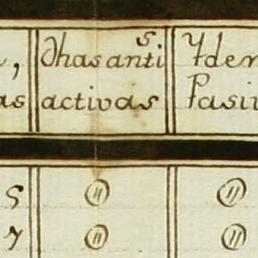 as
dhas antis
activas
Yden
Pasi
5 11 11
7 11 11